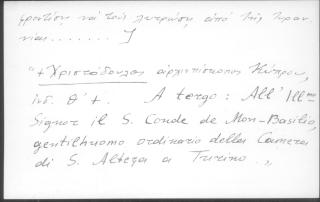 φροντίση νὰ τοὺς λυτρώση ἀπὸ τῆς τυραν-
νίας ....... ]
"+ Χριστόδουλος ἀρχιεπίσκοπος Κύπρου,
ἰνδ. θ´ +. A tergo: All' Ill.mo
Signor il S. Conde de Mon-Basilio,
gentilhuomo ordinario della Camera
di S. Alteza a Turino.„